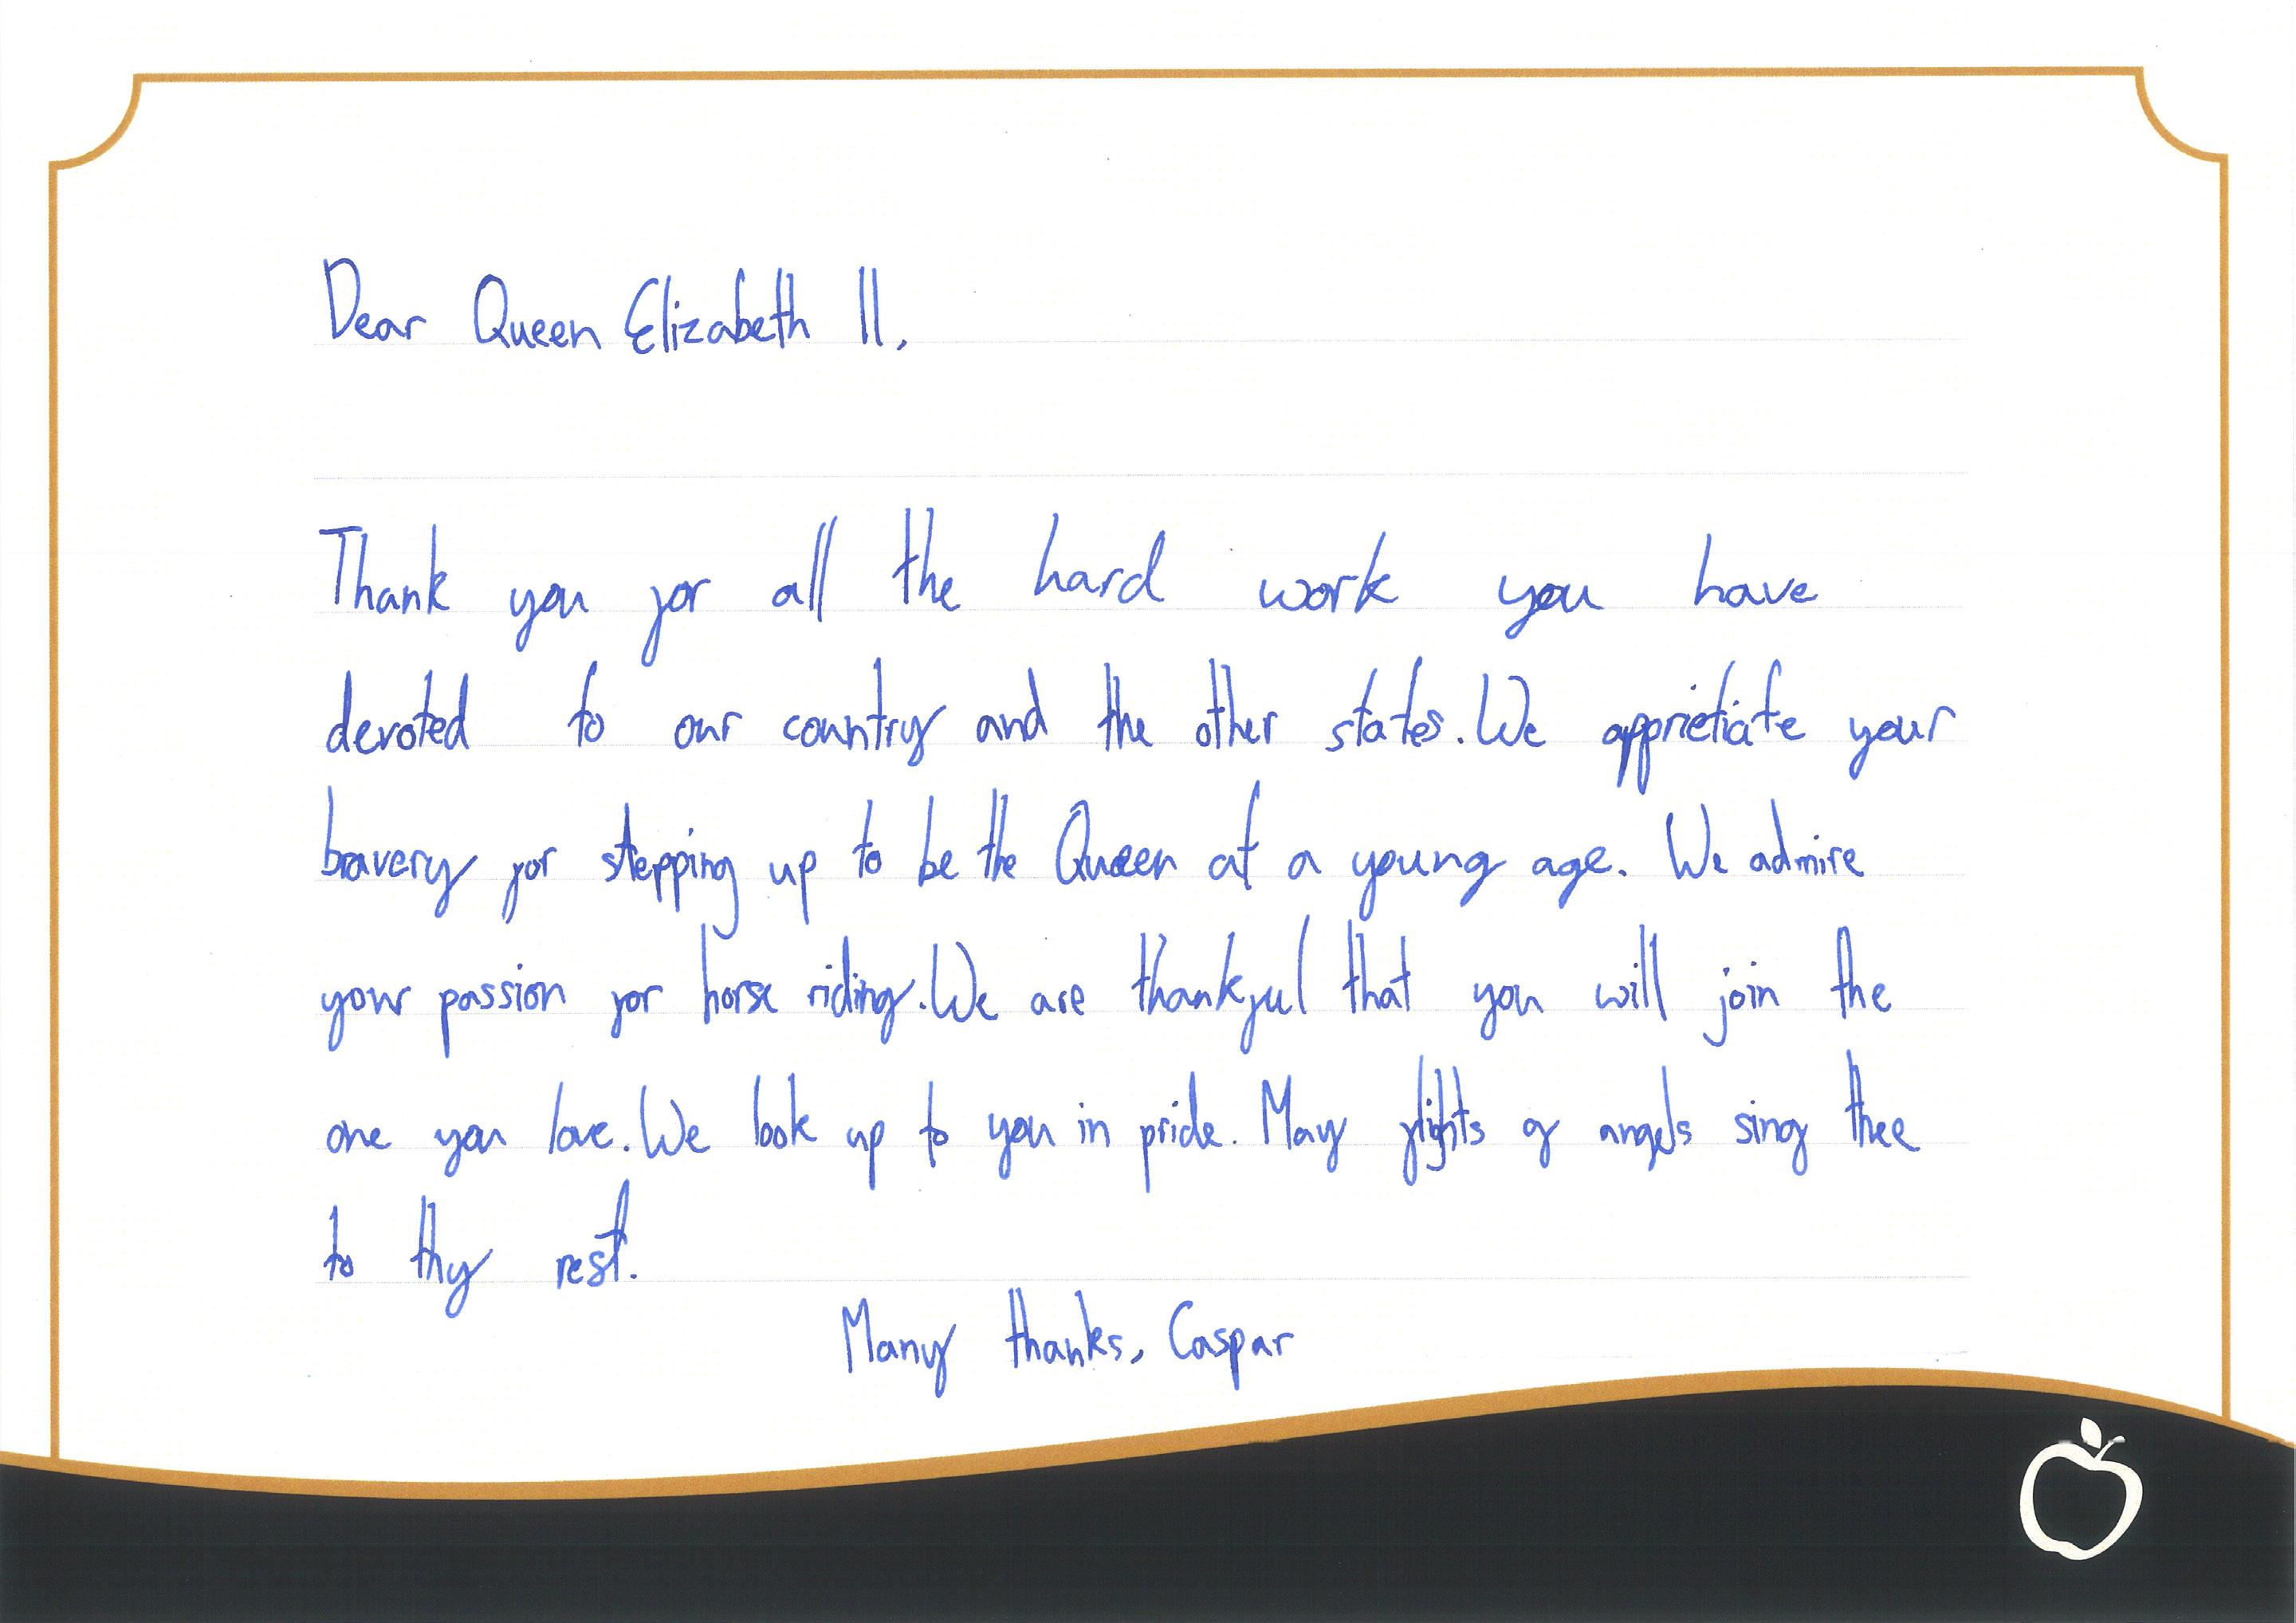 Dear Queen Elizabeth II,
Thank you for all the hard work you have
devoted to our country and the other states. We apprietiate your
bravery for stepping up to be the Queen at a young age. We admire
your passion for horse riding. We are thankful that you will join the
one you love. We look up to you in pride. May flights of angels sing thee
to thy rest.
Many thanks, Caspar